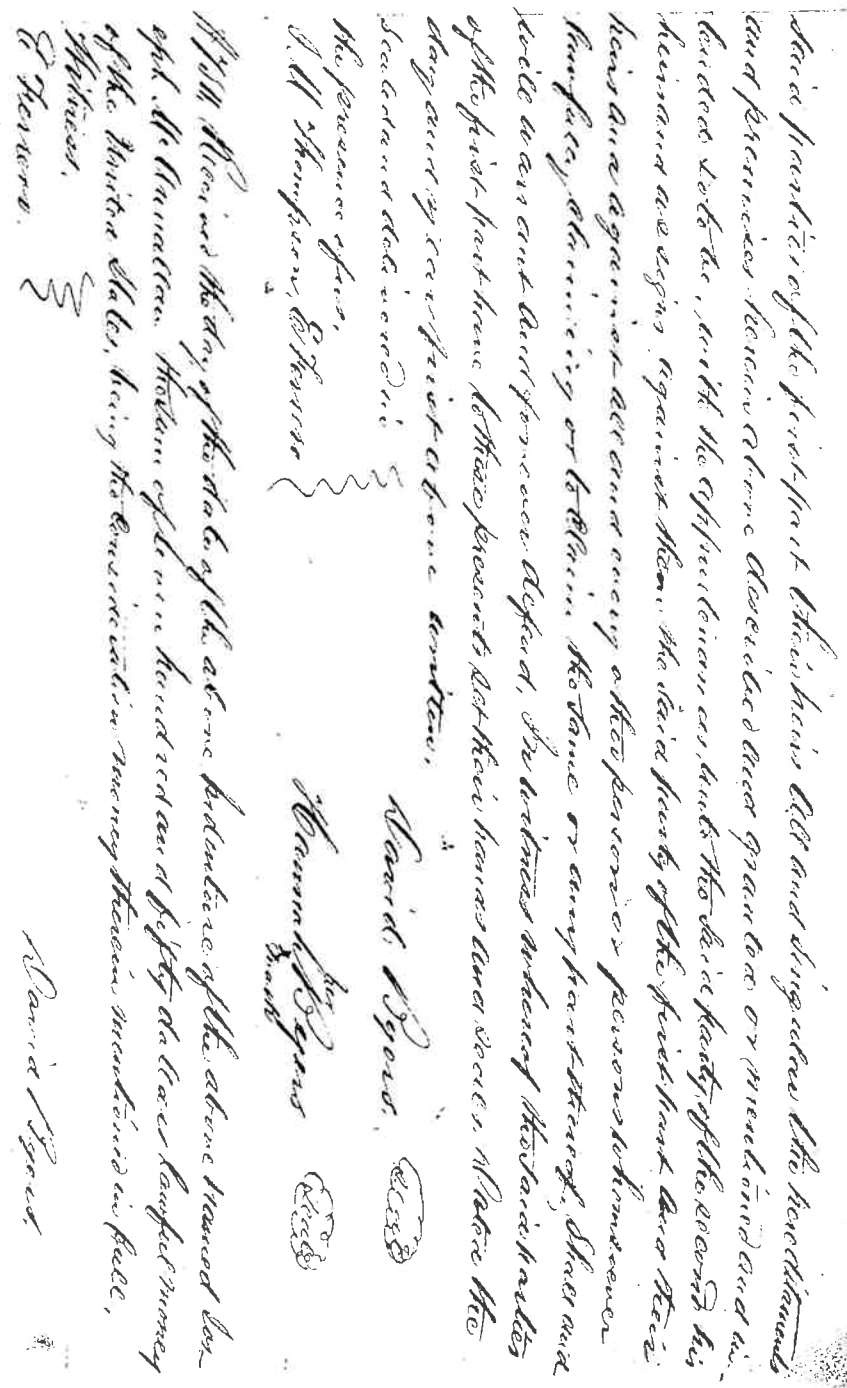 Said parties of the first part their heirs all and singular the hereditaments
and premises herein above described and granted or mentioned and in-
tended so to be, with the appurtenances, unto the said party of the second his
heirs and assigns against them, the said party of the first part and their
heirs and against all and every other person or persons whomsoever
lawfully claiming or to Claim the same or any part thereof, Shall and
will warrant and forever defend, In witness whereof the said parties
of the first part have to these presents set their hands and seals. Dated the
day and year first above written.
Sealed and delivered in
the presence of us,
David Byers. Seal
J. M. Thompson, E Ferrero
Hannah Byers Seal
her
mark
Received the day of the date of the above Indenture of the above named Jos-
eph McClanallan the sum of seven hundred and fifty dollars lawful money
of the United States, being the consideration money therein mentioned in full,
Witness,
E Ferrero.
David Byers.